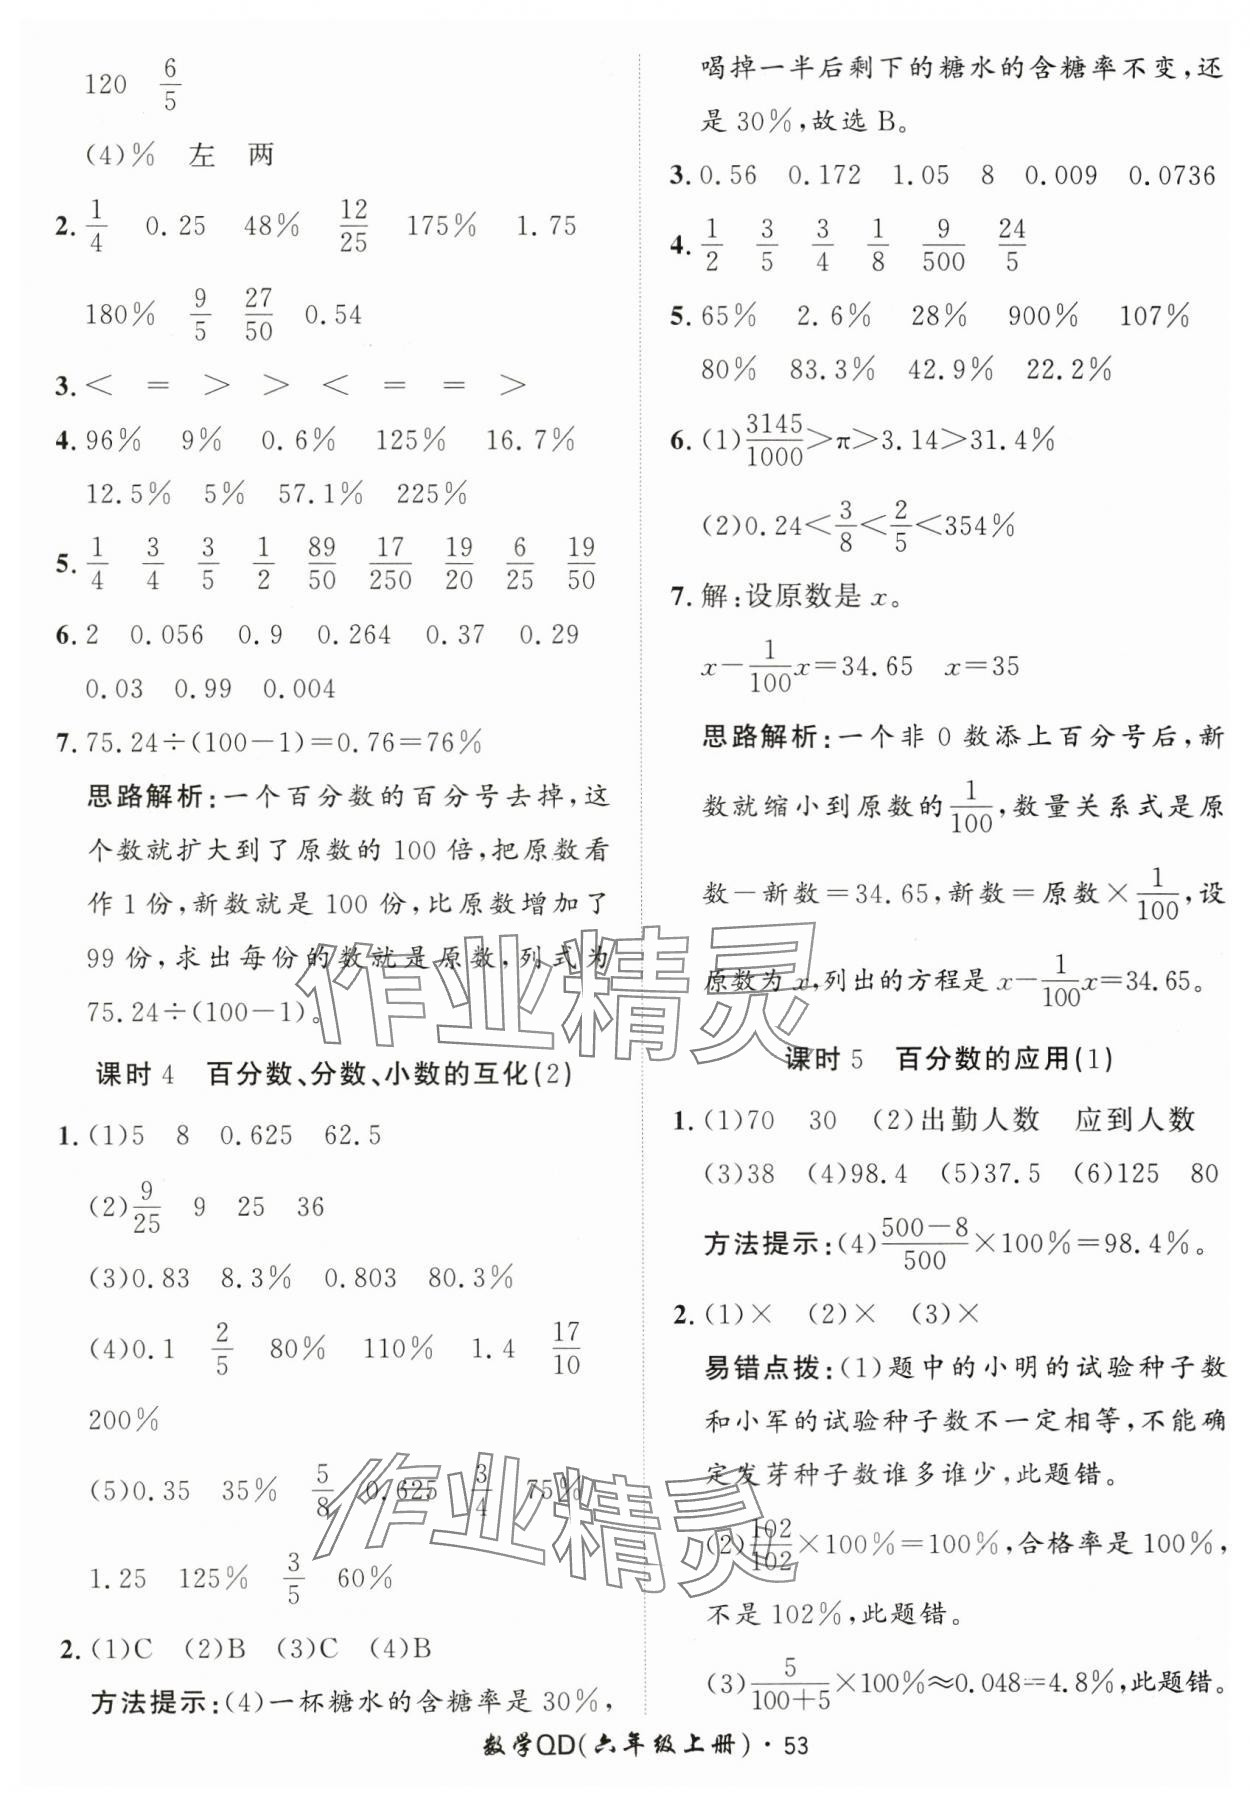 120 6/5
(4)% 左 两
2. 1/4 0.25 48% 12/25 175% 1.75
180% 9/5 27/50 0.54
3. < = > > < = = >
4. 96% 9% 0.6% 125% 16.7%
12.5% 5% 57.1% 225%
5. 1/4 3/4 3/5 1/2 89/50 17/250 19/20 6/25 19/50
6. 2 0.056 0.9 0.264 0.37 0.29
0.03 0.99 0.004
7. 75.24÷(100-1)=0.76=76%
思路解析:一个百分数的百分号去掉,这
个数就扩大到了原数的 100 倍,把原数看
作 1 份,新数就是 100 份,比原数增加了
99 份,求出每份的数就是原数,列式为
75.24÷(100-1)。
课时 4 百分数、分数、小数的互化(2)
1. (1)5 8 0.625 62.5
(2)9/25 9 25 36
(3)0.83 8.3% 0.803 80.3%
(4)0.1 2/5 80% 110% 1.4 17/10
200%
(5)0.35 35% 5/8 0.625 3/4 75%
1.25 125% 3/5 60%
2. (1)C (2)B (3)C (4)B
方法提示:(4)一杯糖水的含糖率是 30%,
喝掉一半后剩下的糖水的含糖率不变,还
是 30%,故选 B。
3. 0.56 0.172 1.05 8 0.009 0.0736
4. 1/2 3/5 3/4 1/8 9/500 24/5
5. 65% 2.6% 28% 900% 107%
80% 83.3% 42.9% 22.2%
6. (1)3145/1000>π>3.14>31.4%
(2)0.24<3/8<2/5<354%
7. 解:设原数是 x。
x-1/100x=34.65 x=35
思路解析:一个非 0 数添上百分号后,新
数就缩小到原数的1/100,数量关系式是原
数-新数=34.65,新数=原数×1/100,设
原数为 x,列出的方程是 x-1/100x=34.65。
课时 5 百分数的应用(1)
1. (1)70 30 (2)出勤人数 应到人数
(3)38 (4)98.4 (5)37.5 (6)125 80
方法提示:(4)500-8/500×100%=98.4%。
2. (1)× (2)× (3)×
易错点拨:(1)题中的小明的试验种子数
和小军的试验种子数不一定相等,不能确
定发芽种子数谁多谁少,此题错。
(2)102/102×100%=100%,合格率是 100%,
不是 102%,此题错。
(3)5/100+5×100%≈0.048=4.8%,此题错。
数学QD(六年级上册)·53
作业精灵
作业精灵